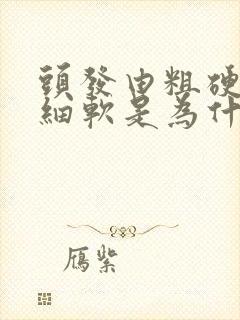 頭發由粗硬
細軟是為什
鴈紫